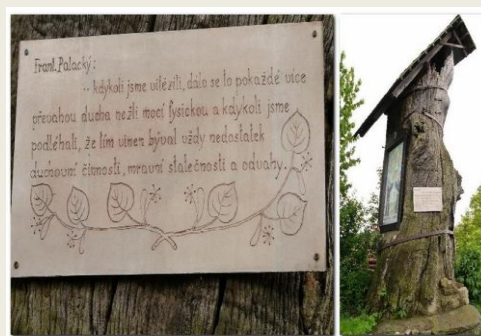 Frant. Palacký:
... kdykoli jsme vítězili, dálo se to pokaždé více
převahou ducha nežli mocí fysickou a kdykoli jsme
podléhali, že tím vinen býval vždy nedostatek
duchovní činnosti, mravní statečnosti a odvahy.